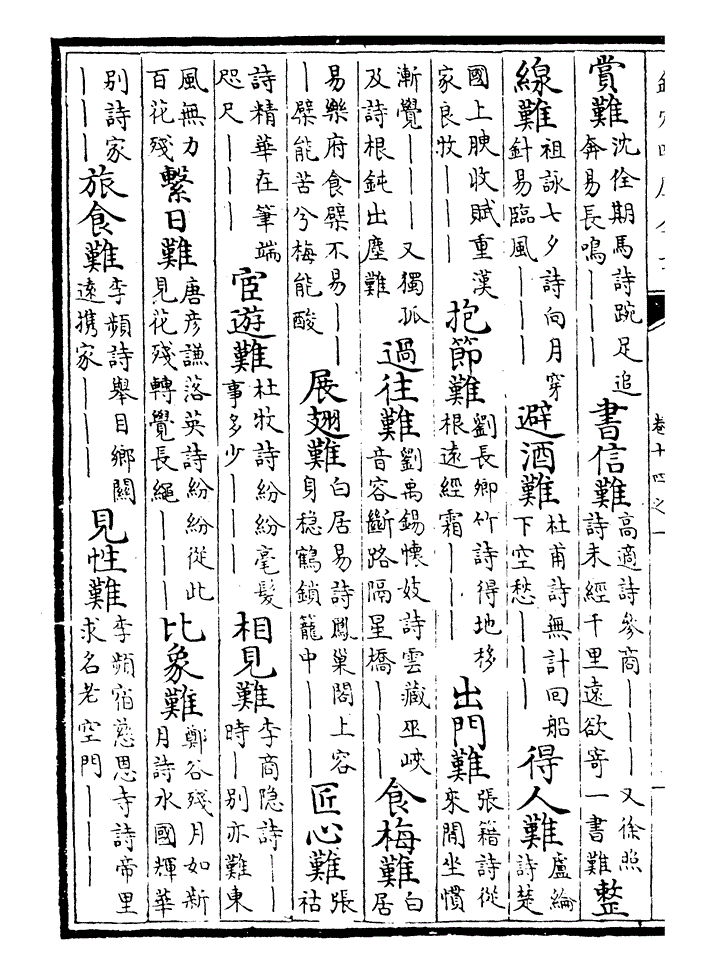 卷十四之一
賞難沈佺期馬詩踠足追奔易長鳴———書信難高適詩參商———又徐照詩未經千里遠欲寄一書難整
線難祖詠七夕詩向月穿針易臨風———避酒難杜甫詩無計回船下空愁———得人難盧綸詩楚
國上腴收賦重漢家良牧———抱節難劉長卿竹詩得地移根遠經霜———出門難張籍詩從來閒坐慣
漸覺———又獨孤及詩根鈍出塵難過往難劉禹錫懷妓詩雲藏巫峽音容斷路隔星橋———食梅難白居
易樂府食檗不易———檗能苦兮梅能酸展翅難白居易詩鳳巢閣上容身穩鶴鎖籠中———匠心難張祜
詩精華在筆端咫尺———宦遊難杜牧詩紛紛毫髮事多少———相見難李商隱詩——時—別亦難東
風無力百花殘繫日難唐彥謙落英詩紛紛從此見花殘轉覺長繩———比象難鄭谷殘月如新月詩水國輝華
別詩家———旅食難李頻詩舉目鄉關遠攜家———見性難李頻宿慈恩寺詩帝里求名老空門———